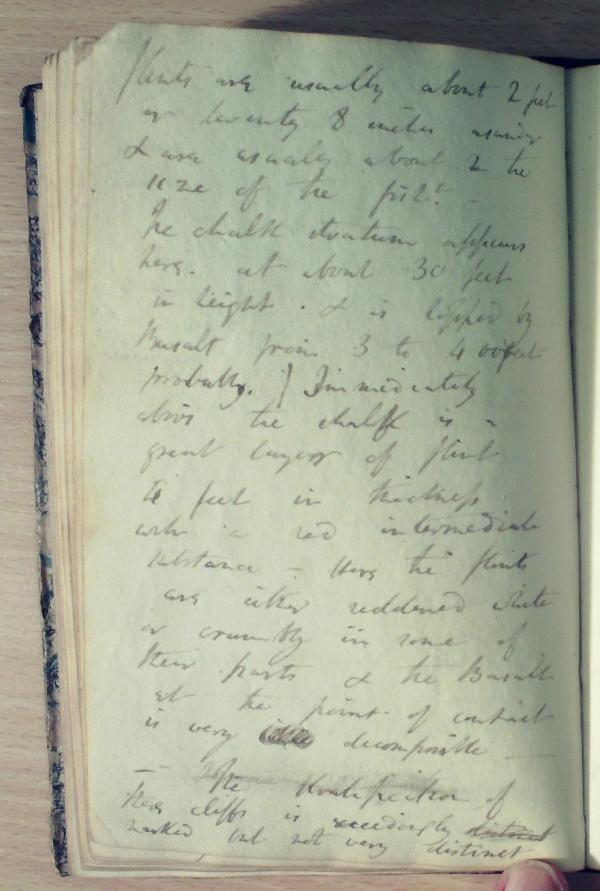 flints are usually about 2 feet
or twenty 8 inches asunder
& are usually about the
size of the fist.
The chalk stratum appears
here. at about 30 feet
in height. & is topped by
Basalt from 3 to 400 feet
probably. Immediately
above the chalk is a
great layer of flint
feet in thickness
with a red intermediate
substance – Here the flints
are either reddened white
or crumbly in some of
their parts & the Basalt
at the point of contact
is very decomposible –
– The stratification of
these cliffs is exceedingly distinct
marked, but not very distinct